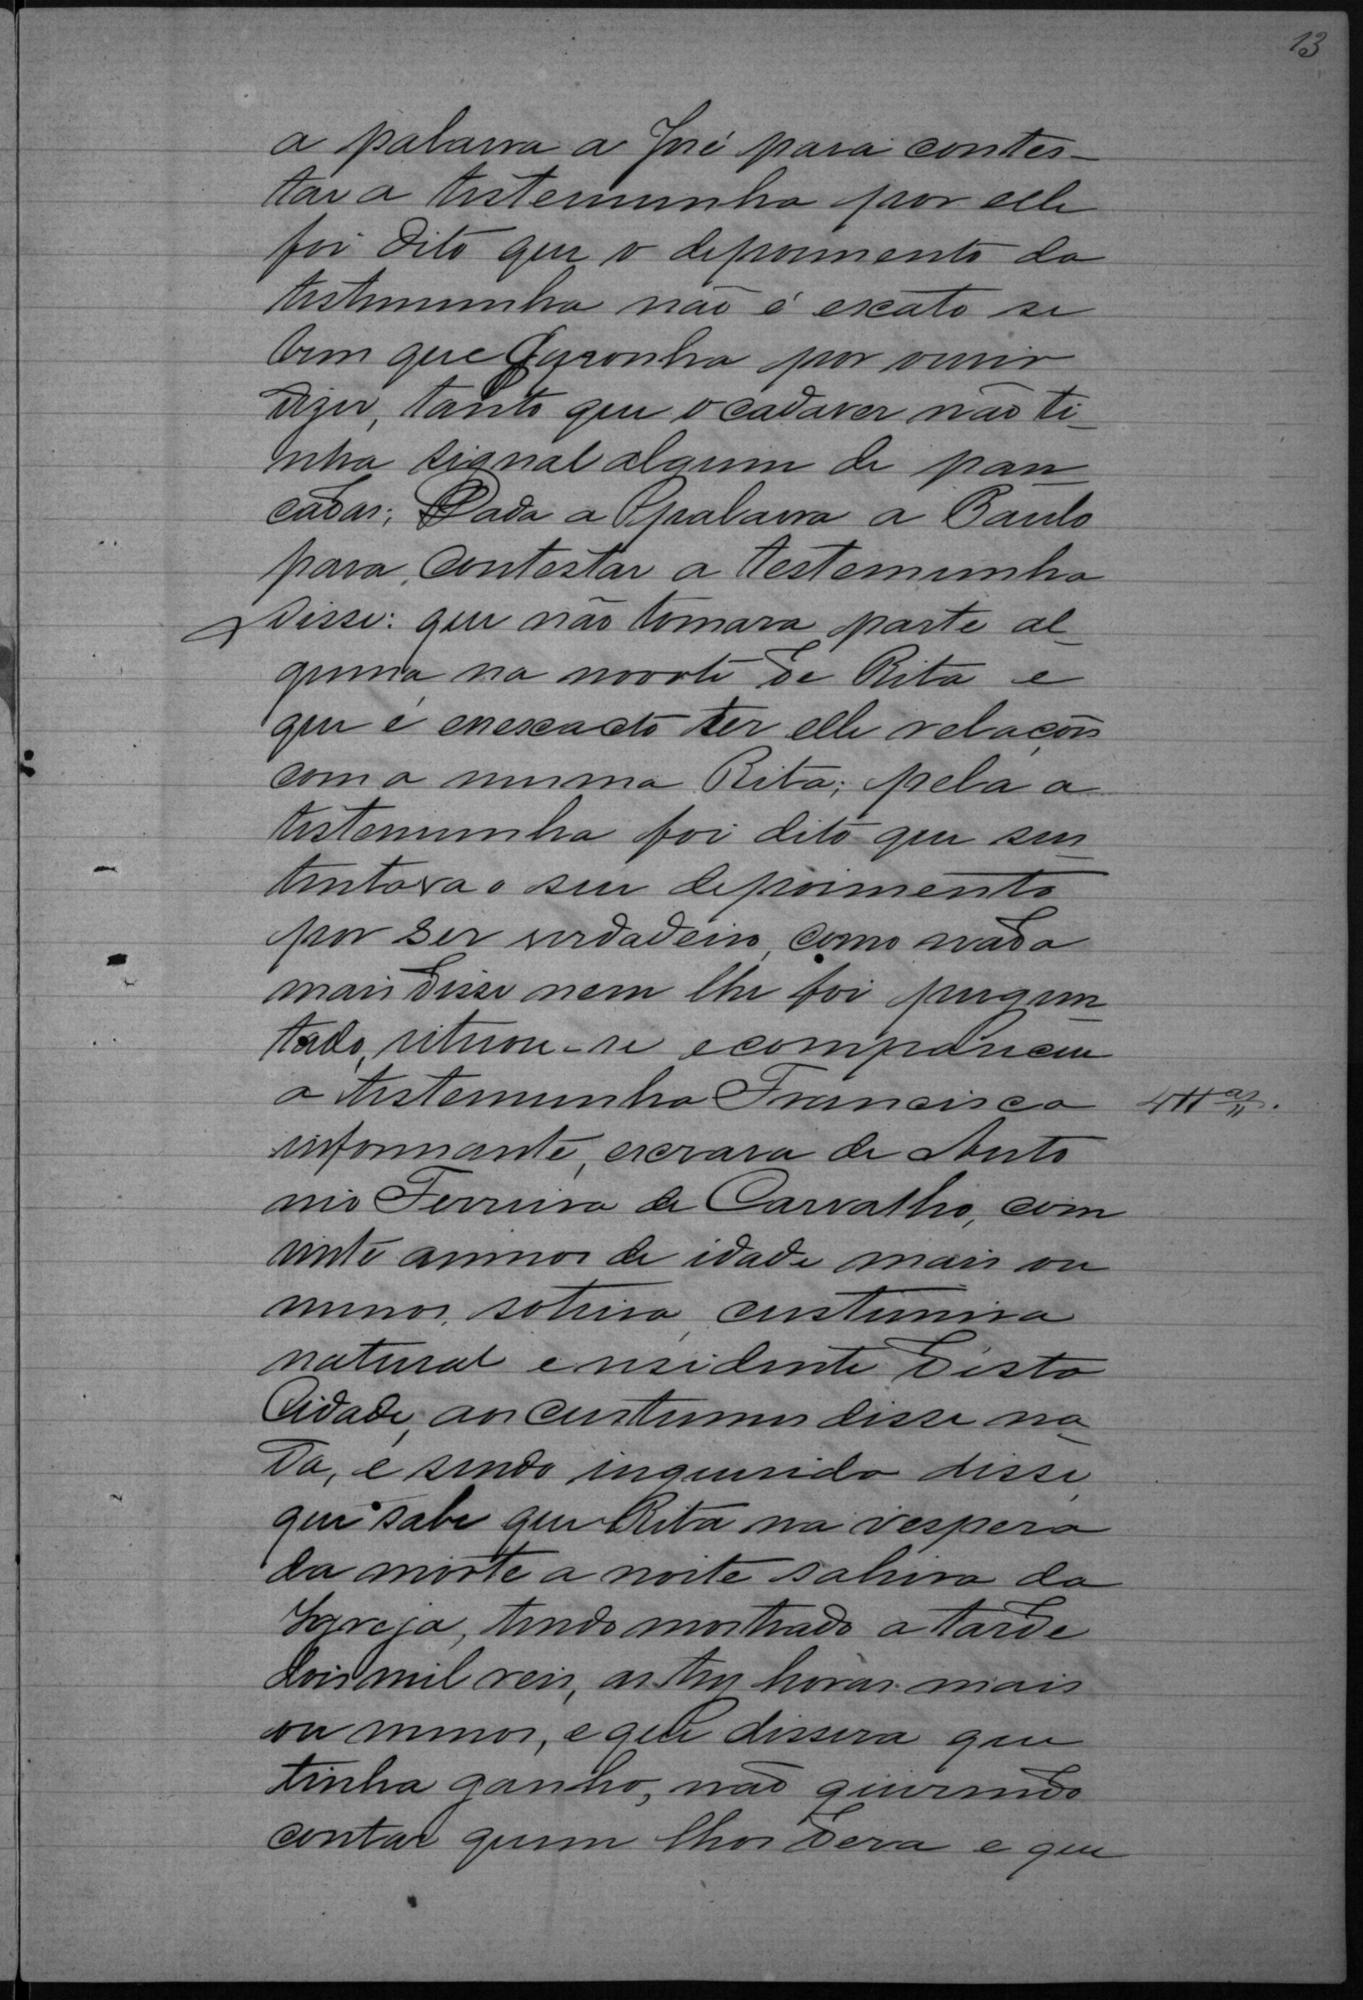 13
a palavra a José para contes-
tar a testemunha por elle
foi dito que o depoimento da
testemunha não é exato se
bem que deponha por ouvir
dizer, tanto que o cadaver não ti-
nha signal algum de pan-
cadas; Dada a palavra a Paulo
para contestar a testemunha
disse: que não tomara parte al-
guma na morte de Rita e
que é enexacto ter elle relações
com a mesma Rita; pela a
testemunha foi dito que sus-
tentava o seu depoimento
por ser verdadeiro, como nada
mais disse nem lhe foi pergun-
tado, retirou-se e compareceu
a testemunha Francisca
informante, escrava de Anto
nio Ferreira de Carvalho, com
vinte annos de idade mais ou
menos, solteira, custureira
natural e residente desta
Cidade, aos custumes disse na-
da, e sendo inquerida disse,
que sabe que Rita na vespera
da morte a noite sahira da
Igreja, tendo mostrado a tarde
dois mil reis, as tres horas mais
ou menos, e que dissera que
tinha ganho, não querendo
contar quem lhos dera e que